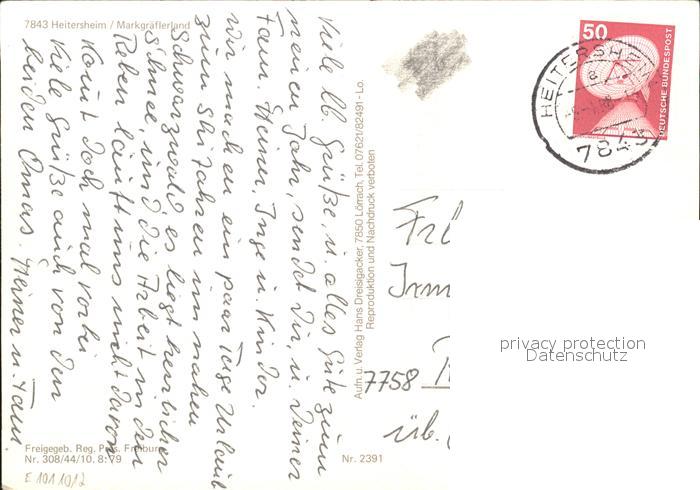 7843 Heitersheim / Markgräflerland
Viele lb. Grüße, u. alles Gute zum
neuen Jahr, sendet Dir, u. Deiner
Fam. Heiner, Inge u. Kinder.
Wir machen ein paar Tage Urlaub
zum Skifahren im nahen
Schwarzwald es liegt herrlicher
Schnee und die Arbeit in den
Reben läuft uns nicht davon
Kommt doch mal vorbei
Viele Grüße auch von den
beiden Omas. Heiner u. Fam
Freigegeb. Reg. Präs. Freiburg
Nr. 308/44/10. 8:79
E 101 1012
Aufn. u. Verlag Hans Dreisigacker, 7850 Lörrach, Tel. 07621/82491 - Lo.
Reproduktion und Nachdruck verboten
Nr. 2391
50
DEUTSCHE BUNDESPOST
HEITERSHEIM
7843
7758
üb.
privacy protection
Datenschutz